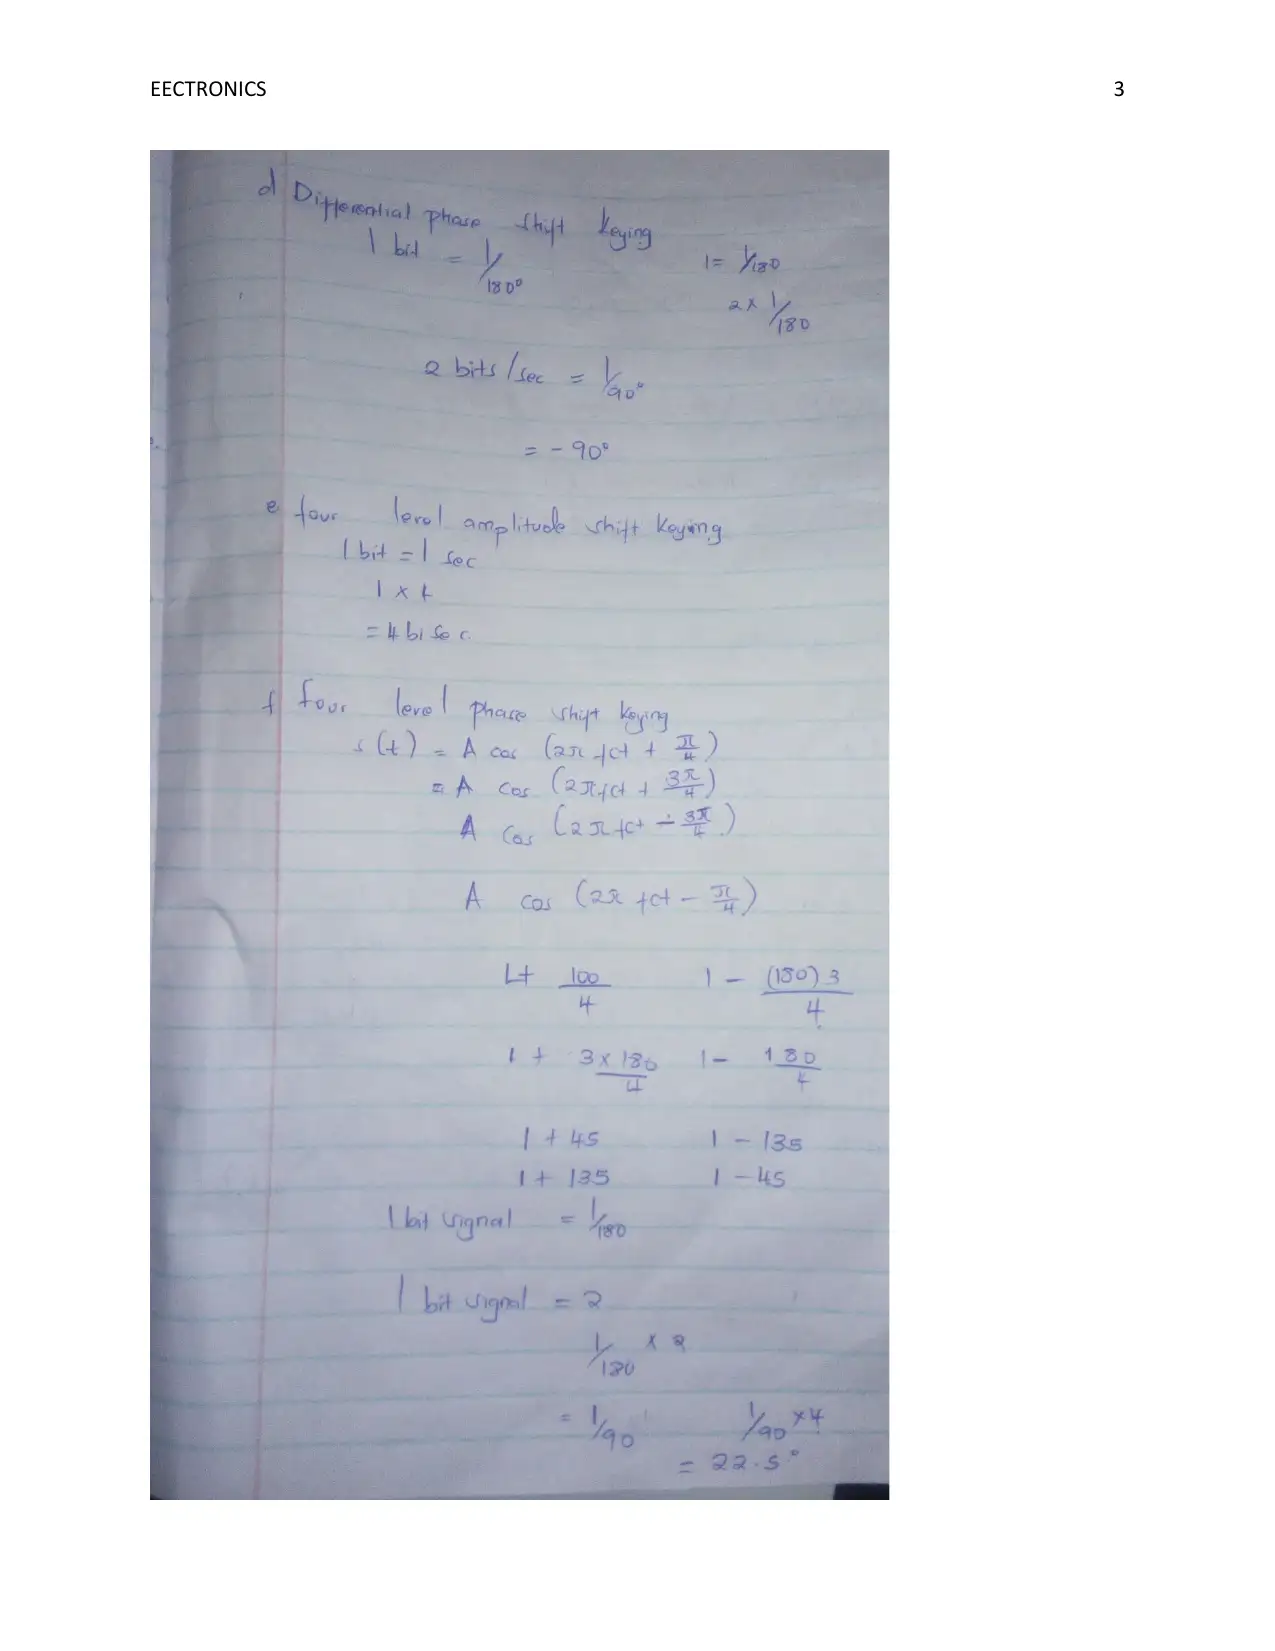 EECTRONICS 3
d Differential phase shift keying
1 bit = 1/180° 1 = 1/180
2 x 1/180
2 bits/sec = 1/90°
= - 90°
e four level amplitude shift keying
1 bit = 1 sec
1 x 4
= 4 bi sec.
f four level phase shift keying
s(t) = A cos (2π fct + π/4)
= A cos (2π fct + 3π/4)
A cos (2π fct - 3π/4)
A cos (2π fct - π/4)
1+ 100/4 1 - (180)3/4
1 + 3 x 180/4 1 - 180/4
1 + 45 1 - 135
1 + 135 1 - 45
1 bit signal = 1/180
1 bit signal = 2
1/180 x 2
= 1/90 1/90 x 4
= 22.5°